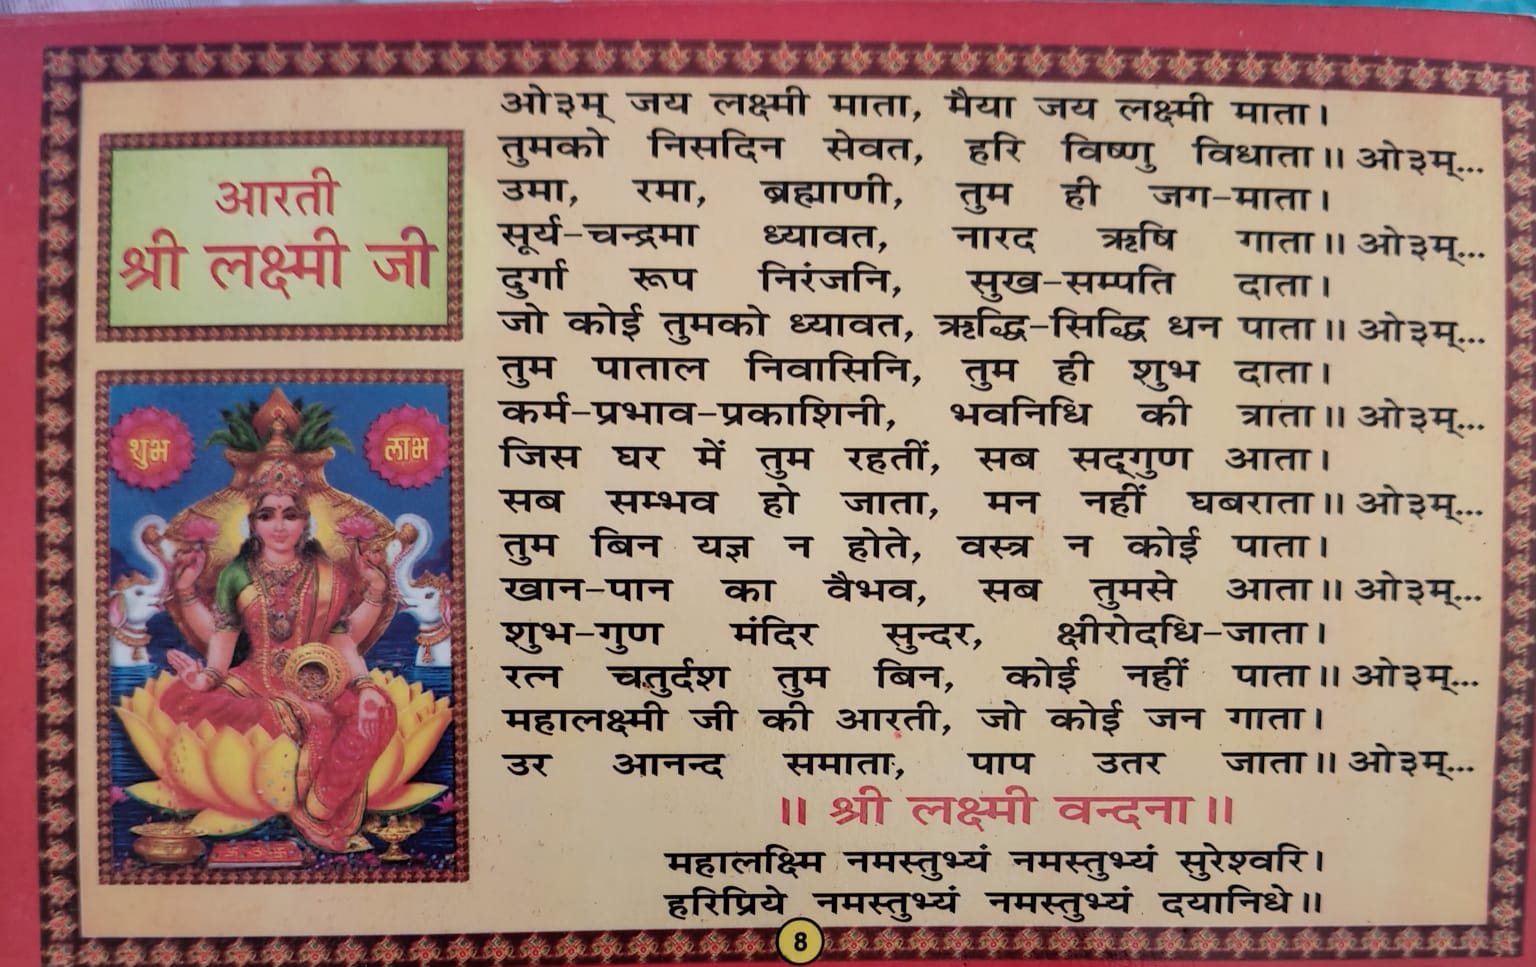 आरती
श्री लक्ष्मी जी
शुभ
लाभ
ओ३म् जय लक्ष्मी माता, मैया जय लक्ष्मी माता।
तुमको निसदिन सेवत, हरि विष्णु विधाता॥ ओ३म्...
उमा, रमा, ब्रह्माणी, तुम ही जग-माता।
सूर्य-चन्द्रमा ध्यावत, नारद ऋषि गाता॥ ओ३म्...
दुर्गा रूप निरंजनि, सुख-सम्पति दाता।
जो कोई तुमको ध्यावत, ऋद्धि-सिद्धि धन पाता॥ ओ३म्...
तुम पाताल निवासिनि, तुम ही शुभ दाता।
कर्म-प्रभाव-प्रकाशिनी, भवनिधि की त्राता॥ ओ३म्...
जिस घर में तुम रहतीं, सब सद्‌गुण आता।
सब सम्भव हो जाता, मन नहीं घबराता॥ ओ३म्...
तुम बिन यज्ञ न होते, वस्त्र न कोई पाता।
खान-पान का वैभव, सब तुमसे आता॥ ओ३म्...
शुभ-गुण मंदिर सुन्दर, क्षीरोदधि-जाता।
रत्न चतुर्दश तुम बिन, कोई नहीं पाता॥ ओ३म्...
महालक्ष्मी जी की आरती, जो कोई जन गाता।
उर आनन्द समाता, पाप उतर जाता॥ ओ३म्...
॥ श्री लक्ष्मी वन्दना॥
महालक्ष्मि नमस्तुभ्यं नमस्तुभ्यं सुरेश्वरि।
हरिप्रिये नमस्तुभ्यं नमस्तुभ्यं दयानिधे॥
8